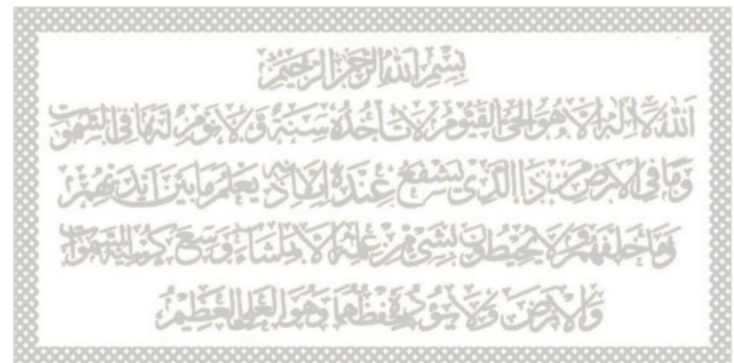 بسم الله الرحمن الرحيم
الله لا اله الا هو الحي القيوم لا تأخذه سنة ولا نوم له ما في السموت
وما في الارض من ذا الذي يشفع عنده الا باذنه يعلم ما بين ايديهم
وما خلفهم ولا يحيطون بشيء من علمه الا بما شاء وسع كرسيه السموات
والارض ولا يئوده حفظهما وهو العلي العظيم